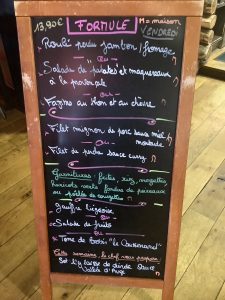 13,90€ FORMULE
M = maison
VENDREDI
Roulé poireau jambon / fromage
Ou
Salade de pâtes et maquereaux
à la provençale
Ou
Farcies au thon et au chèvre
Filet mignon de porc sauce miel
moutarde
Ou
Filet de perche sauce curry
Garnitures: frites, riz, mogettes
haricots verts, fondue de poireaux
ou poêlée de courgettes
Gaufre liégeoise
Ou
Salade de fruits
Ou
Tome de brebis "Le
Cette semaine, le chef vous propose:
de dinde sauce
Vallée d'Auge